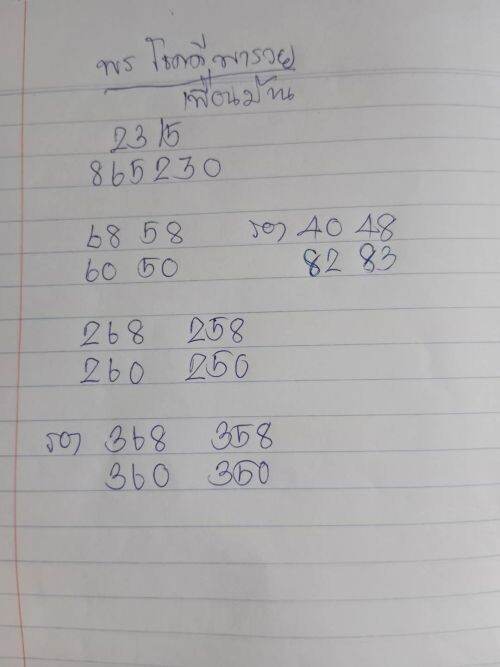 พร โชคดี พารวย
เพื่อนบ้าน
23 15
865230
68 58 รอง 40 48
60 50 82 83
268 258
260 250
รอง 368 358
360 350